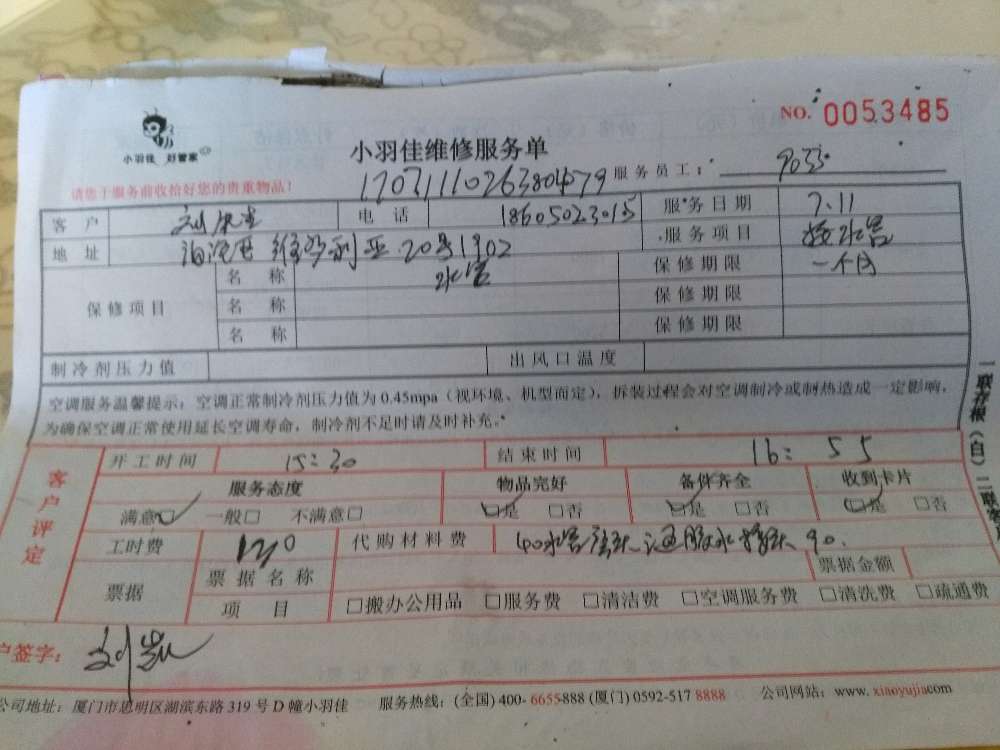 NO. 0053485
小羽佳 好管家
小羽佳维修服务单
请您于服务前收拾好您的贵重物品!
17071110263804079 服务员工:
客户 刘 电话 18605023015 服务日期 7.11
地址 维多利亚 20号1902 服务项目 接水管
保修项目 名称 水管 保修期限 一个月
名称 保修期限
名称 保修期限
制冷剂压力值 出风口温度
空调服务温馨提示:空调正常制冷剂压力值为 0.45mpa(视环境、机型而定),拆装过程会对空调制冷或制热造成一定影响,
为确保空调正常使用延长空调寿命,制冷剂不足时请及时补充。
一联存根(白)二联客
客户评定
开工时间 15:30 结束时间 16:55
服务态度 物品完好 备件齐全 收到卡片
满意□ 一般□ 不满意□ □是 □否 □是 □否 □是 □否
工时费 代购材料费 90.
票据 票据名称 票据金额
项目 □搬办公用品 □服务费 □清洁费 □空调服务费 □清洗费 □疏通费
户签字: 刘
公司地址:厦门市思明区湖滨东路 319 号 D 幢小羽佳 服务热线:(全国) 400-6655888 (厦门) 0592-517 8888 公司网站:www.xiaoyujia.com